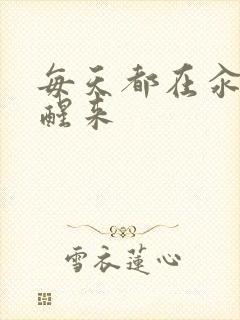 每天都在汆
醒来
雪衣莲心